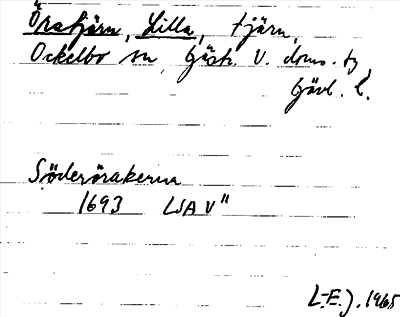 Öratjärn, Lilla, tjärn,
Ockelbo sn, Gästr. V. doms. tg
Gävl. l.
Söderörakerna
1693 LSA V"
L-E. J. 1965